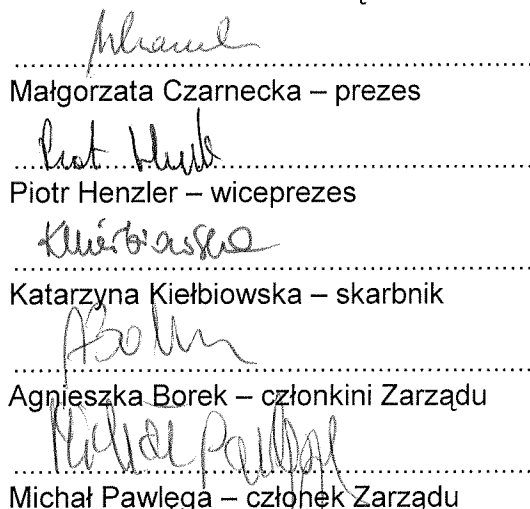 Małgorzata Czarnecka – prezes
Piotr
Piotr Henzler – wiceprezes
Katarzyna Kiełbiowska – skarbnik
Agnieszka Borek – członkini Zarządu
Michał
Michał Pawlęga – członek Zarządu